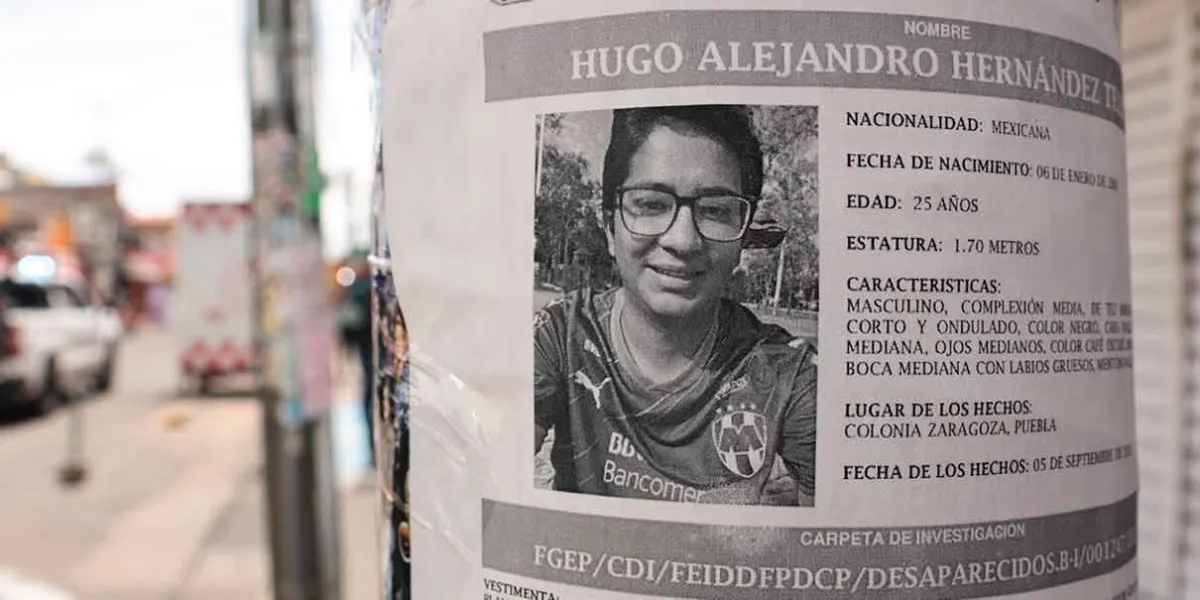 NOMBRE
HUGO ALEJANDRO HERNÁNDEZ
NACIONALIDAD: MEXICANA
FECHA DE NACIMIENTO: 06 DE ENERO DE
EDAD: 25 AÑOS
ESTATURA: 1.70 METROS
CARACTERISTICAS:
MASCULINO, COMPLEXIÓN MEDIA, DE TEZ
CORTO Y ONDULADO, COLOR NEGRO, CARA
MEDIANA, OJOS MEDIANOS, COLOR CAFÉ
BOCA MEDIANA CON LABIOS GRUESOS,
LUGAR DE LOS HECHOS:
COLONIA ZARAGOZA, PUEBLA
FECHA DE LOS HECHOS: 05 DE SEPTIEMBRE DE
BBV
Bancomer
M
CARPETA DE INVESTIGACIÓN
FGEP/CDI/FEIDDFPDCP/DESAPARECIDOS.B-I/00124
VESTIMENTA: